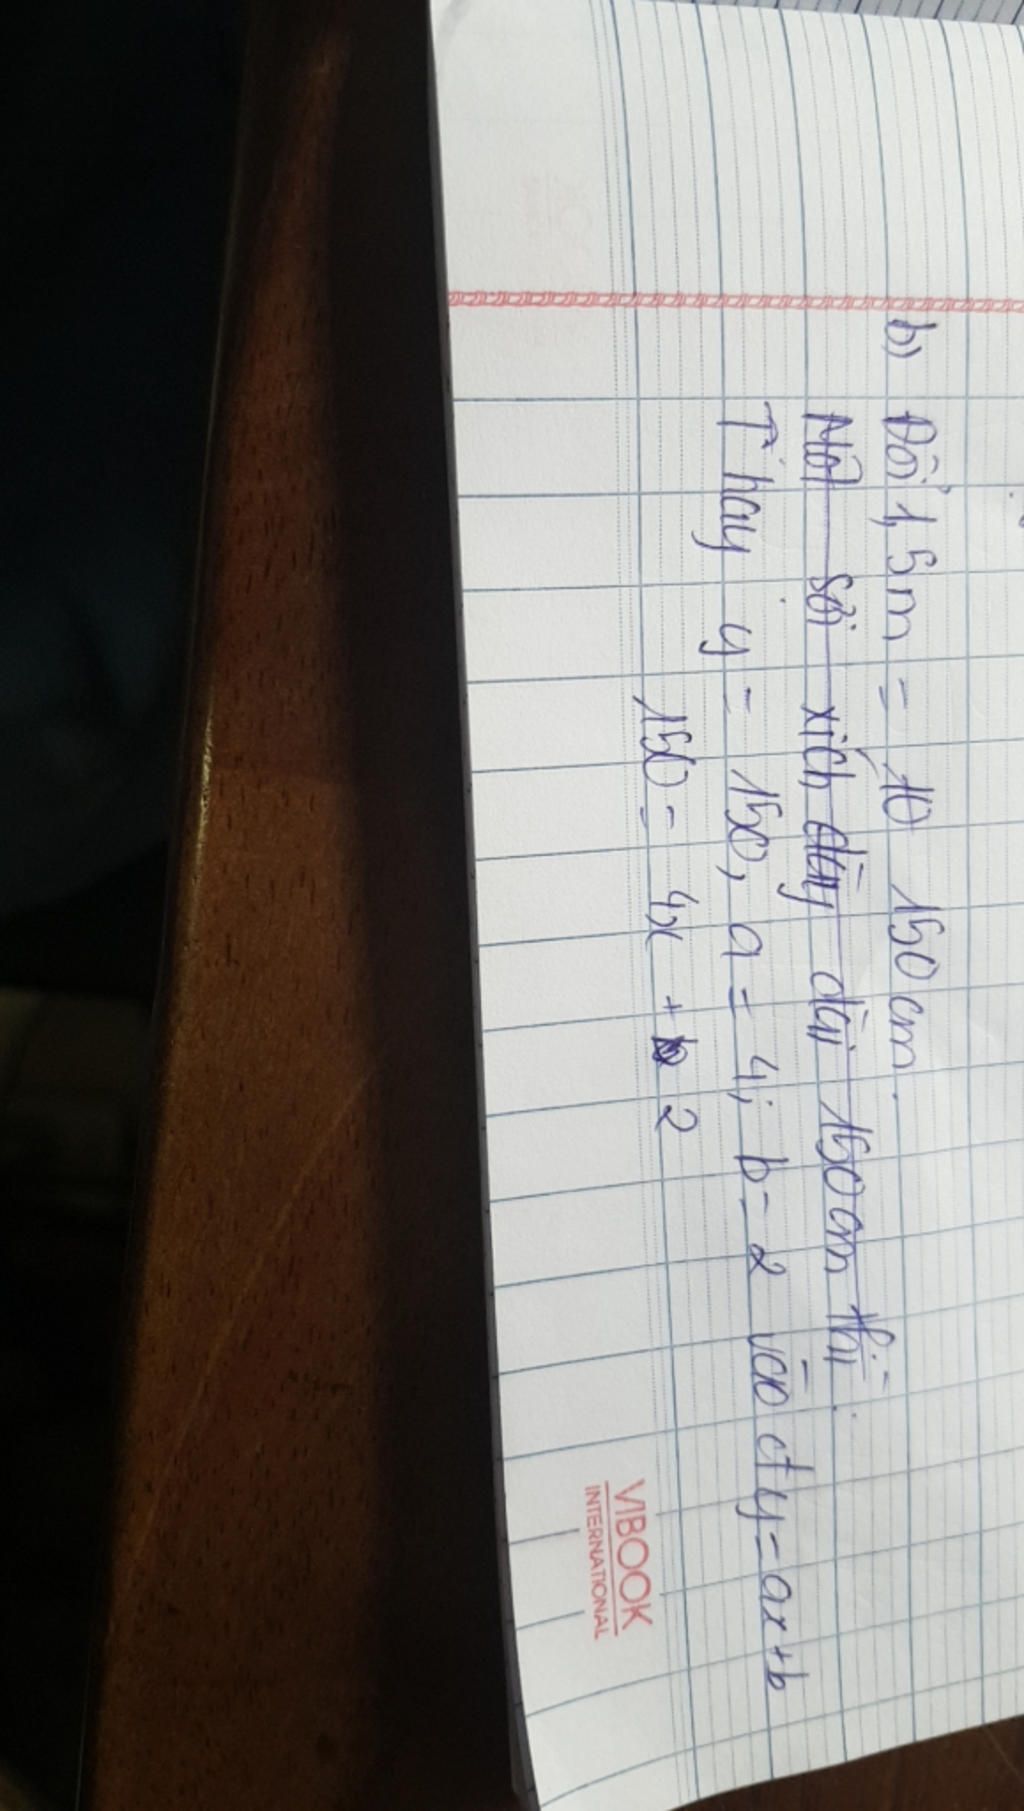 b) Đổi 1,5m = 10 150 cm.
Một sợi xích dây dài 150cm thì
Thay y = 150, a = 4; b = 2 vào ct y = ax + b
150 = 4x + b 2
VIBOOK
INTERNATIONAL